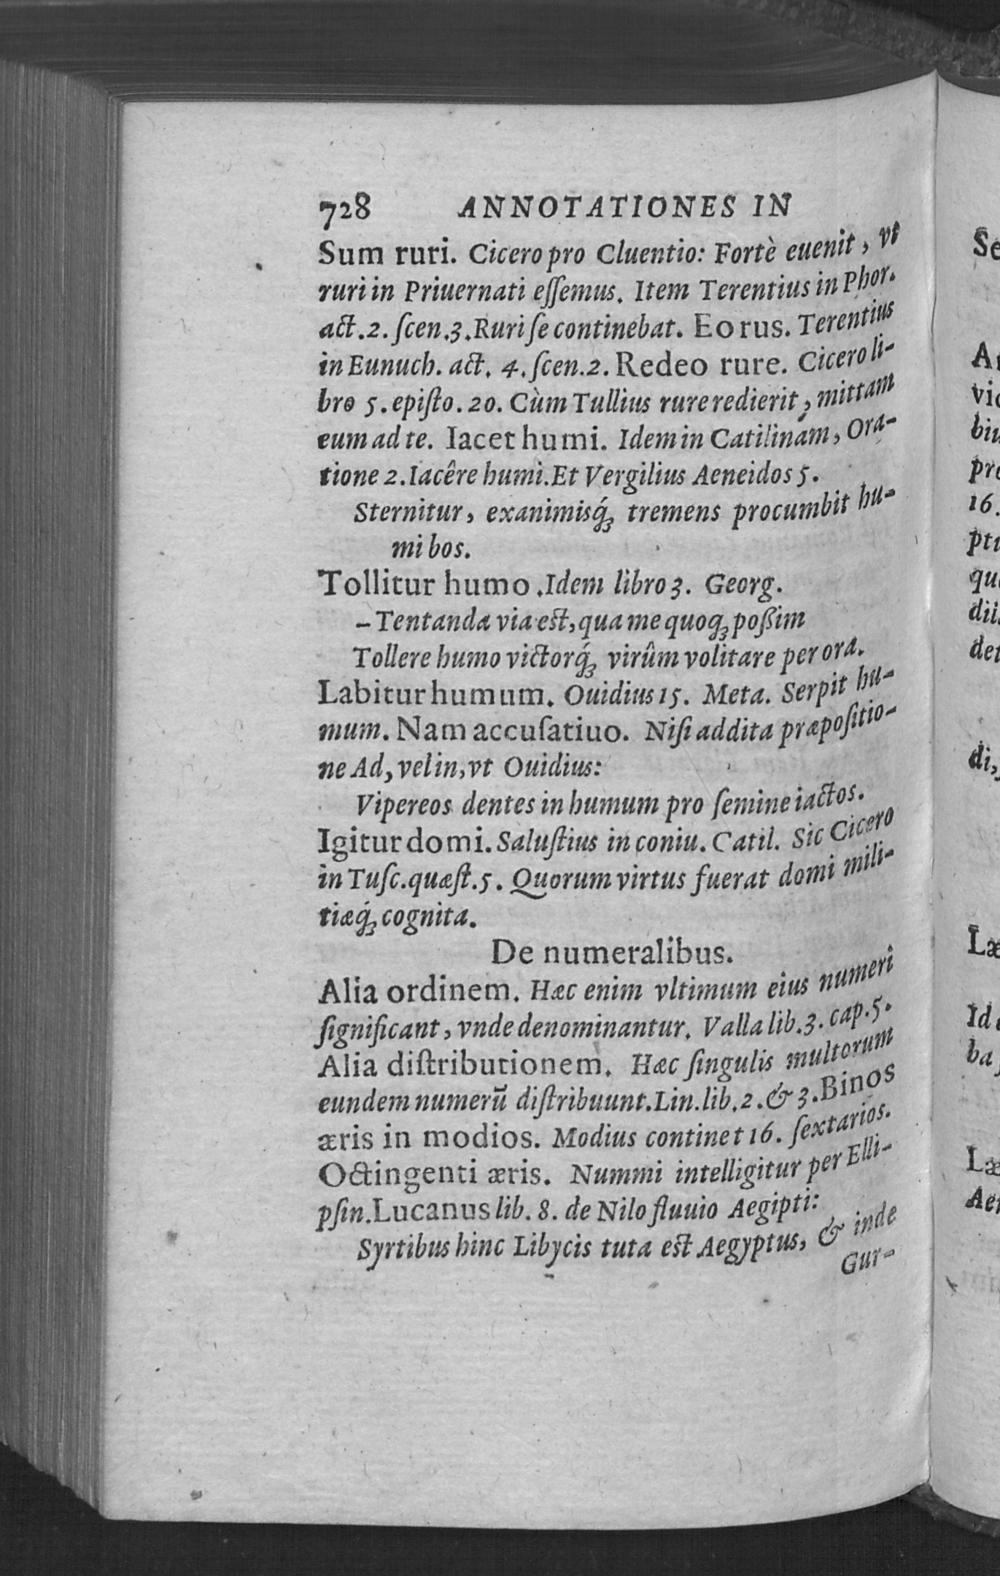 728 ANNOTATIONES IN
Sum ruri. Cicero pro Cluentio: Fortè euenit, vt
ruri in Priuernati eſſemus. Item Terentius in Phor.
act.2.ſcen.3.Ruri ſe continebat. Eo rus. Terentius
in Eunuch. act. 4.ſcen.2. Redeo rure. Cicero li-
bro 5.epiſto.20. Cùm Tullius rure redierit, mittam
eum ad te. Iacet humi. Idem in Catilinam, Ora-
tione 2.Iacêre humi.Et Vergilius Aeneidos 5.
Sternitur, exanimisq́ꝫ tremens procumbit hu-
mi bos.
Tollitur humo.Idem libro 3. Georg.
–Tentanda via est,qua me quoqꝫ poßim
Tollere humo victorq́ꝫ virûm volitare per ora.
Labitur humum. Ouidius 15. Meta. Serpit hu-
mum. Nam accuſatiuo. Niſi addita præpoſitio-
ne Ad, vel in,vt Ouidius:
Vipereos dentes in humum pro ſemine iactos.
Igitur domi. Saluſtius in coniu. Catil. Sic Cicero
in Tuſc.quæſt.5. Quorum virtus fuerat domi mili-
tiæq́ꝫ cognita.
De numeralibus.
Alia ordinem. Hæc enim vltimum eius numeri
ſignificant, vnde denominantur. Valla lib.3. cap.5.
Alia diſtributionem. Hæc ſingulis multorum
eundem numerũ diſtribuunt.Lin.lib.2.& 3.Binos
æris in modios. Modius continet 16. ſextarios.
Octingenti æris. Nummi intelligitur per Elli-
pſin.Lucanus lib. 8. de Nilo fluuio Aegipti:
Syrtibus hinc Libycis tuta est Aegyptus, & inde
Gur-
Se
Ar
vic
biu
pro
16.
ptu
qu
dii
det
di,
Læ
Id
ba
Læ
Aen